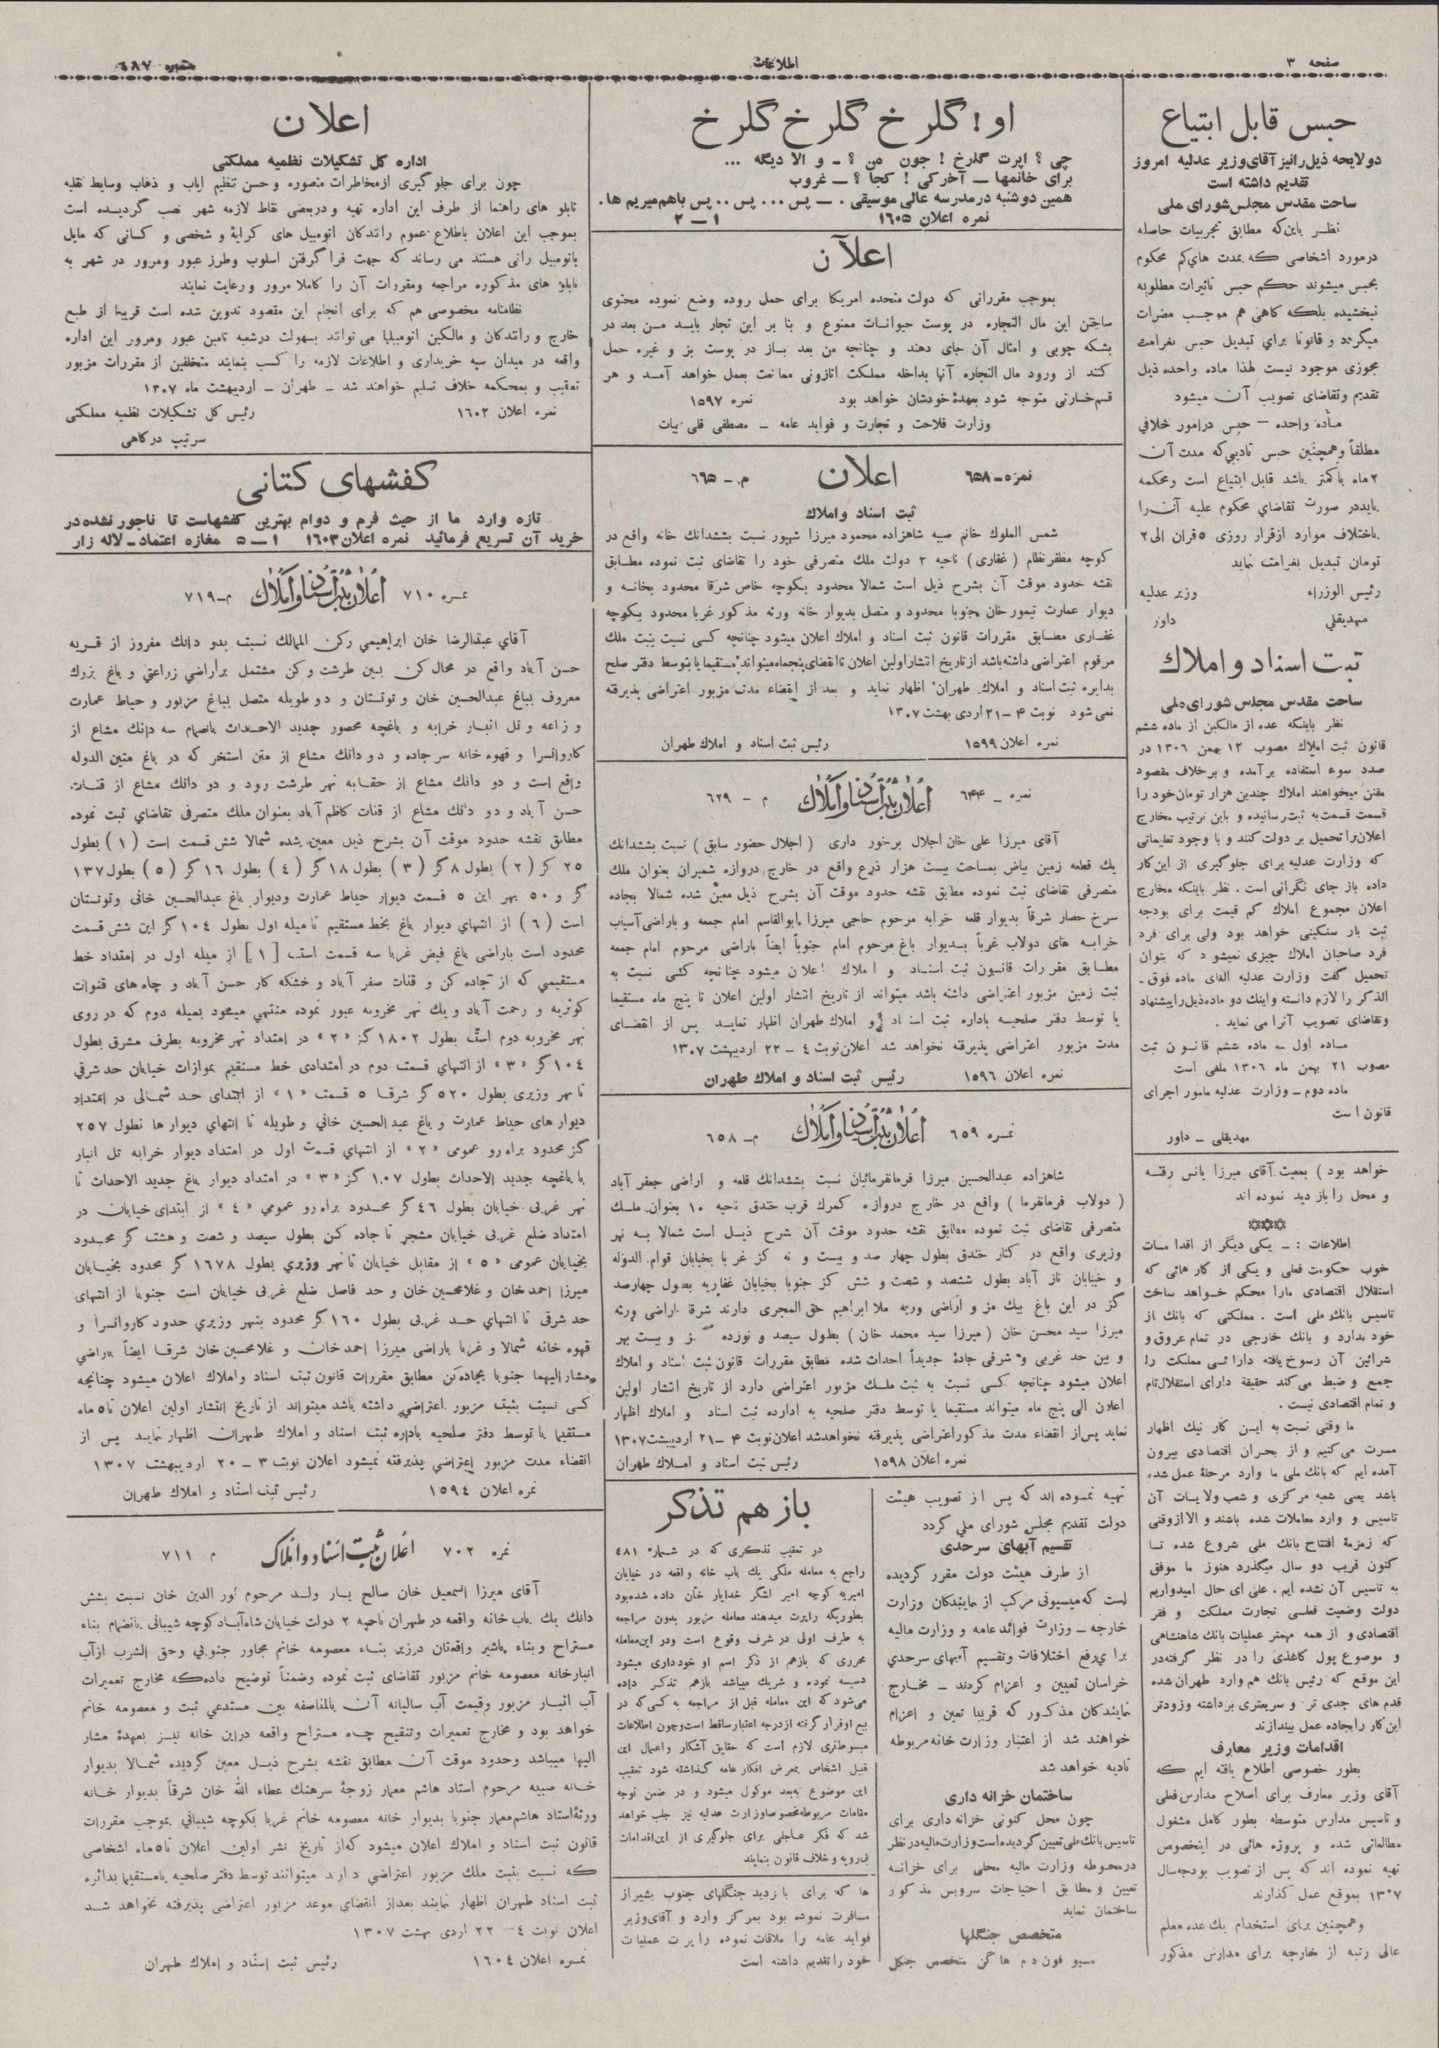 صفحه ۳
اطلاعات
شماره ٦٨٧
حبس قابل ابتیاع
دولایحه ذیل رانیز آقای وزیر عدلیه امروز
تقدیم داشته است
ساحت مقدس مجلس شورای ملی
نظر باین‌که مطابق تجربیات حاصله
درمورد اشخاصی که بمدت های‌کم محکوم
بحبس میشوند حکم حبس تاثیرات مطلوبه
نبخشیده بلکه گاهی هم موجب مضرات
میگردد و قانونا برای تبدیل حبس بغرامت
مجوزی موجود نیست لهذا ماده واحده ذیل
تقدیم وتقاضای تصویب آن میشود
مأده واحده – حبس درامور خلافی
مطلقاً وهمچنین حبس تادیبی‌که مدت آن
۲ماه یا کمتر باشد قابل ابتیاع است ومحکمه
بایددر صورت تقاضای محکوم علیه آن را
باختلاف موارد ازقرار روزی ٥قران الی ۲
تومان تبدیل بغرامت نماید
رئیس الوزراء وزیر عدلیه
مهدیقلی داور
ثبت اسناد و املاك
ساحت مقدس مجلس شورای ملی
نظر باینکه عده از مالکین از ماده ششم
قانون ثبت املاك مصوب ۱۲ بهمن ۱۳۰٦ در
صدد سوء استفاده برآمده و برخلاف مقصود
مقنن میخواهند املاك چندین هزار تومان خود را
قسمت قسمت به ثبت رسانیده و باین ترتیب مخارج
اعلان را تحمیل بر دولت کنند و با وجود تعلیماتی
که وزارت عدلیه برای جلوگیری از این‌کار
داده باز جای نگرانی است . نظر باینکه مخارج
اعلان مجموع املاك کم قیمت برای بودجه
ثبت بار سنگینی خواهد بود ولی برای فرد
فرد صاحبان املاك چیزی نمیشود که بتوان
تحمیل گفت وزارت عدلیه الغای ماده فوق-
الذکر را لازم دانسته واینك دو ماده ذیل را پیشنهاد
وتقاضای تصویب آنرا می نماید .
ماده اول – ماده ششم قانون ثبت
مصوب ۲۱ بهمن ماه ۱۳۰٦ ملغی است
ماده دوم – وزارت عدلیه مامور اجرای
قانون است
مهدیقلی – داور
خواهد بود ) بمعیت آقای میرزا یانس رفته
و محل را بازدید نموده اند
اطلاعات : – یکی دیگر از اقدامات
خوب حکومت فعلی و یکی از کارهائی که
استقلال اقتصادی مارا محکم خواهد ساخت
تاسیس بانك ملی است . مملکتی که بانك از
خود ندارد و بانك خارجی در تمام عروق و
شرائین آن رسوخ یافته دارائی مملکت را
جمع و ضبط می‌کند حقیقة دارای استقلال تام
و تمام اقتصادی نیست .
ما وقتی نسبت به این کار نیك اظهار
مسرت می‌کنیم و از بحران اقتصادی بیرون
آمده ایم که بانك ملی ما وارد مرحلهٔ عمل شده
باشد یعنی شعبه مرکزی و شعب ولایات آن
تاسیس و وارد معاملات شده باشند و الا ازوقتی
که زمزمهٔ افتتاح بانك ملی شروع شده تا
کنون قریب دو سال میگذرد هنوز ما موفق
به تاسیس آن نشده ایم . علی ای حال امیدواریم
دولت وضعیت فعلی تجارت مملکت و فقر
اقتصادی و از همه مهمتر عملیات بانك شاهنشاهی
و موضوع پول کاغذی را در نظر گرفته در
این موقع که رئیس بانك هم وارد طهران شده
قدم های جدی تر و سریعتری برداشته وزودتر
این کار را بجاده عمل بیندازند
اقدامات وزیر معارف
بطور خصوصی اطلاع یافته ایم که
آقای وزیر معارف برای اصلاح مدارس فعلی
و تاسیس مدارس متوسطه بطور کامل مشغول
مطالعاتی شده و پروژه هائی در اینخصوص
تهیه نموده اند که پس از تصویب بودجه سال
۱۳۰۷ بموقع عمل گذارند
وهمچنین برای استخدام یك عده معلم
عالی رتبه از خارجه برای مدارس مذکور
او! گلرخ گلرخ گلرخ
چی ؟ اپرت گلرخ ! جون من ؟ – و الا دیگه ...
برای خانمها – آخرکی ! کجا ؟ – غروب
همین دوشنبه درمدرسه عالی موسیقی . – پس ... پس .. پس باهم میریم ها.
نمره اعلان ۱٦۰٥ ۱ – ۲
اعلان
بموجب مقرراتی که دولت متحده امریکا برای حمل روده وضع نموده محتوی
ساختن این مال التجاره در پوست حیوانات ممنوع و بنا بر این تجار باید من بعد در
بشکه چوبی و امثال آن جای دهند و چنانچه من بعد باز در پوست بز و غیره حمل
کنند از ورود مال التجاره آنها بداخله مملکت اتازونی ممانعت بعمل خواهد آمد و هر
قسم خسارتی متوجه شود بعهدهٔ خودشان خواهد بود نمره ۱٥۹۷
وزارت فلاحت و تجارت و فواید عامه – مصطفی قلی بیات
نمره– ٦٥۸ اعلان م.– ٦٦٥
ثبت اسناد و املاك
شمس الملوك خانم صبیه شاهزاده محمود میرزا شهپور نسبت بششدانك خانه واقع در
کوچه مظفر نظام (غفاری) ناحیه ۲ دولت ملك متصرفی خود را تقاضای ثبت نموده مطابق
نقشه حدود موقت آن بشرح ذیل است شمالا محدود بکوچه خاص شرقا محدود بخانه و
دیوار عمارت تیمور خان جنوبا محدود و متصل بدیوار خانه ورثه مذکور غربا محدود بکوچه
غفاری مطابق مقررات قانون ثبت اسناد و املاك اعلان میشود چنانچه کسی نسبت بثبت ملك
مرقوم اعتراضی داشته باشد از تاریخ انتشار اولین اعلان تا انقضای پنجماه میتواند مستقیما یا بتوسط دفتر صلح
بدایره ثبت اسناد و املاك طهران اظهار نماید و بعد از انقضاء مدت مزبور اعتراضی پذیرفته
نمی شود نوبت ۴ –۲۱ اردی بهشت ۱۳۰۷
نمره اعلان ۱٥۹۹ رئیس ثبت اسناد و املاك طهران
نمره – ٦۴۴ اعلان ثبت اسناد و املاك م – ٦۲۹
آقای میرزا علی خان اجلال برخور داری (اجلال حضور سابق) نسبت بششدانك
یك قطعه زمین بیاض بمساحت بیست هزار ذرع واقع در خارج دروازه شمیران بعنوان ملك
متصرفی تقاضای ثبت نموده مطابق نقشه حدود موقت آن بشرح ذیل معین شده شمالا بجاده
سرخ حصار شرقاً بدیوار قلعه خرابه مرحوم حاجی میرزا ابوالقاسم امام جمعه و باراضی آسیاب
خرابه های دولاب غرباً بدیوار باغ مرحوم امام جنوباً ایضاً باراضی مرحوم امام جمعه
مطابق مقررات قانون ثبت اسناد و املاك اعلان میشود چنانچه کسی نسبت به
ثبت زمین مزبور اعتراضی داشته باشد میتواند از تاریخ انتشار اولین اعلان تا پنج ماه مستقیما
یا توسط دفتر صلحیه باداره ثبت اسناد و املاك طهران اظهار نماید پس از انقضای
مدت مزبور اعتراضی پذیرفته نخواهد شد اعلان نوبت ٤ – ۲۲ اردیبهشت ۱۳۰۷
نمره اعلان ۱٥۹٦ رئیس ثبت اسناد و املاك طهران
نمره ٦٥۹ اعلان ثبت اسناد و املاك م– ٦٥۸
شاهزاده عبدالحسین میرزا فرمانفرمائیان نسبت بششدانك قلعه و اراضی جعفر آباد
(دولاب فرمانفرما) واقع در خارج دروازه گمرك قرب خندق ناحیه ۱۰ بعنوان ملك
متصرفی تقاضای ثبت نموده مطابق نقشه حدود موقت آن شرح ذیل است شمالا به نهر
وزیری واقع در کنار خندق بطول چهار صد و بیست و نه گز غربا بخیابان قوام الدوله
و خیابان ناز آباد بطول ششصد و شصت و شش گز جنوبا بخیابان غفاریه بطول چهارصد
گز در این باغ بیك مز و اراضی ورثه ملا ابراهیم حق المجری دارند شرقا باراضی ورثه
میرزا سید محسن خان (میرزا سید محمد خان) بطول سیصد و نوزده گز و بیست بهر
و بین حد غربی و شرقی جادهٔ جدیداً احداث شده مطابق مقررات قانون ثبت اسناد و املاك
اعلان میشود چنانچه کسی نسبت به ثبت ملك مزبور اعتراضی دارد از تاریخ انتشار اولین
اعلان الی پنج ماه میتواند مستقیما یا توسط دفتر صلحیه به ادارده ثبت اسناد و املاك اظهار
نماید پس از انقضاء مدت مذکور اعتراضی پذیرفته نخواهد شد اعلان نوبت ۴ –۲۱ اردیبهشت ۱۳۰۷
نمره اعلان ۱٥۹۸ رئیس ثبت اسناد و املاك طهران
تهیه نموده اند که پس از تصویب هیئت
دولت تقدیم مجلس شورای ملی گردد
تقسیم آبهای سرحدی
از طرف هیئت دولت مقرر گردیده
است که میسیونی مرکب از نمایندگان وزارت
خارجه – وزارت فوائد عامه و وزارت مالیه
برای رفع اختلافات وتقسیم آبهای سرحدی
خراسان تعیین و اعزام گردند – مخارج
نمایندگان مذکور که قریبا تعین و اعزام
خواهند شد از اعتبار وزارت خانه مربوطه
تادیه خواهد شد
ساختمان خزانه داری
چون محل کنونی خزانه داری برای
تاسیس بانك ملی تعیین گردیده است وزارت مالیه در نظر
درمحوطه وزارت مالیه محلی برای خزانه
تعیین و مطابق احتیاجات سرویس مذکور
ساختمان نماید
متخصص جنگلها
مسیو فون دم هاگن متخصص جنگل
باز هم تذکر
در تعقیب تذکری که در شماره ٤۸۱
راجع به معامله ملکی یك باب خانه واقعه در خیابان
امیریه کوچه امیر لشگر خدایار خان داده شده بود
بطوریکه راپرت میدهند معامله مزبور بدون مراجعه
به طرف اولی در شرف وقوع است ودر این معامله
محرری که بازهم از ذکر اسم او خودداری میشود
دسیسه نموده و شریك میباشد بازهم تذکر داده
می‌شود که این معامله قبل از مراجعه به کسی که در
بیع او قرار گرفته از درجه اعتبار ساقط است وچون اطلاعات
مبسوط‌تری لازم است که حقایق آشکار واعمال این
قبیل اشخاص بمعرض افکار عامه گذاشته شود تعقیب
این موضوع ببعد موکول میشود و در ضمن توجه
مقامات مربوطه مخصوصا وزارت عدلیه نیز جلب خواهد
شد که فکر عاجلی برای جلوگیری از این اقدامات
بی‌رویه و خلاف قانون بنمایند
ها که برای بازدید جنگلهای جنوب بشیراز
مسافرت نموده بود بمرکز وارد و آقای وزیر
فواید عامه را ملاقات نموده راپرت عملیات
خود را تقدیم داشته است
اعلان
اداره کل تشکیلات نظمیه مملکتی
چون برای جلوگیری از مخاطرات متصوره و حسن تنظیم ایاب و ذهاب وسایط نقلیه
تابلو های راهنما از طرف این اداره تهیه و در بعضی نقاط لازمه شهر نصب گردیده است
بموجب این اعلان باطلاع عموم رانندگان اتومبیل های کرایهٔ و شخصی و کسانی که مایل
باتومبیل رانی هستند می رساند که جهت فرا گرفتن اسلوب وطرز عبور ومرور در شهر به
تابلو های مذکوره مراجعه ومقررات آن را کاملا مرور و رعایت نمایند
نظامنامه مخصوصی هم که برای انجام این مقصود تدوین شده است قریبا از طبع
خارج و رانندگان و مالکین اتومبیلها می توانند بسهولت درشعبه تامین عبور ومرور این اداره
واقعه در میدان سپه خریداری و اطلاعات لازمه را کسب بنمایند متخلفین از مقررات مزبور
تعقیب و بمحکمه خلاف تسلیم خواهند شد – طهران – اردیبهشت ماه ۱۳۰۷
نمره اعلان ۱٦۰۲ رئیس کل تشکیلات نظمیه مملکتی
سرتیپ درگاهی
کفشهای کتانی
تازه وارد ما از حیث فرم و دوام بهترین کفشهاست تا ناجور نشده در
خرید آن تسریع فرمائید نمره اعلان ۱٦۰۳ ۱ – ٥ مغازه اعتماد – لاله زار
نمره ۷۱۰ اعلان ثبت اسناد و املاك م–۷۱۹
آقای عبدالرضا خان ابراهیمی رکن الممالك نسبت بدو دانك مفروز از قریه
حسن آباد واقع در محال کن بین طرشت وکن مشتمل براراضی زراعتی و باغ بزرك
معروف بباغ عبدالحسین خان و توتستان و دو طویله متصل بباغ مزبور و حیاط عمارت
و زاعه و تل انبار خرابه و باغچه محصور جدید الاحداث بانضمام سه دانك مشاع از
کاروانسرا و قهوه خانه سر جاده و دو دانك مشاع از متن استخر که در باغ متین الدوله
واقع است و دو دانك مشاع از حقابه نهر طرشت رود و دو دانك مشاع از قنات
حسن آباد و دو دانك مشاع از قنات کاظم آباد بعنوان ملك متصرفی تقاضای ثبت نموده
مطابق نقشه حدود موقت آن بشرح ذیل معین شده شمالا شش قسمت است (۱) بطول
۲٥ گز (۲) بطول ۸گز (۳) بطول ۱۸گز (٤) بطول ۱٦گز (٥) بطول ۱۳۷
گز و ٥۰ بهر این ٥ قسمت دیوار حیاط عمارت ودیوار باغ عبدالحسین خانی وتوتستان
است (٦) از انتهای دیوار باغ بخط مستقیم تا میله اول بطول ۱۰٤گز این شش قسمت
محدود است باراضی باغ فیض غربا سه قسمت است [۱] از میله اول در امتداد خط
مستقیمی که از جاده کن و قنات صفر آباد و خشکه کار حسن آباد و چاه های قنوات
کوثریه و رحمت آباد و یك نهر مخروبه عبور نموده منتهی میشود بمیله دوم که در روی
نهر مخروبه دوم است بطول ۱۸۰۲ گز «۲» در امتداد نهر مخروبه بطرف مشرق بطول
۱۰٤گز «۳» از انتهای قسمت دوم در امتدادی خط مستقیم بموازات خیابان حد شرقی
تا نهر وزیری بطول ٥۲۰ گز شرقا ٥ قسمت «۱» از ابتدای حد شمالی در امتداد
دیوار های حیاط عمارت و باغ عبدالحسین خانی و طویله تا انتهای دیوار ها بطول ۲٥۷
گز محدود براه رو عمومی «۲» از انتهای قسمت اول در امتداد دیوار خرابه تل انبار
با باغچه جدید الاحداث بطول ۱۰۷ گز «۳» در امتداد دیوار باغ جدید الاحداث تا
نهر غربی خیابان بطول ٤٦ گز محدود براه رو عمومی «٤» از ابتدای خیابان در
امتداد ضلع غربی خیابان مشجر تا جاده کن بطول سیصد و شصت و هشت گز محدود
بخیابان عمومی «٥» از مقابل خیابان تا نهر وزیری بطول ۱٦۷۸ گز محدود بخیابان
میرزا احمد خان و غلامحسین خان و حد فاصل ضلع غربی خیابان است جنوبا از انتهای
حد شرقی تا انتهای حد غربی بطول ۱٦۰گز محدود بنهر وزیری حدود کاروانسرا و
قهوه خانه شمالا و غربا باراضی میرزا احمد خان و غلامحسین خان شرقا ایضاً باراضی
مشار الیهما جنوبا بجاده کن مطابق مقررات قانون ثبت اسناد واملاك اعلان میشود چنانچه
کسی نسبت بثبت مزبور اعتراضی داشته باشد میتواند از تاریخ انتشار اولین اعلان تا ٥ماه
مستقیما یا توسط دفتر صلحیه باداره ثبت اسناد و املاك طهران اظهار نماید پس از
انقضاء مدت مزبور اعتراضی پذیرفته نمیشود اعلان نوبت ۳ – ۲۰ اردیبهشت ۱۳۰۷
نمره اعلان ۱٥۹٤ رئیس ثبت اسناد و املاك طهران
نمره ۷۰۲ اعلان ثبت اسناد و املاك م ۷۱۱
آقای میرزا اسمعیل خان صالح یار ولد مرحوم نور الدین خان نسبت بشش
دانك یك باب خانه واقعه در طهران ناحیه ۲ دولت خیابان شاه آباد کوچه شیبانی بانضمام بناء
مستراح وبناء پاشیر واقعتان درزیر بناء معصومه خانم مجاور جنوبی وحق الشرب ازآب
انبار خانه معصومه خانم مزبور تقاضای ثبت نموده وضمناً توضیح داده که مخارج تعمیرات
آب انبار مزبور وقیمت آب سالیانه آن بالمناصفه بین مستدعی ثبت و معصومه خانم
خواهد بود و مخارج تعمیرات وتنقیح چاه مستراح واقعه دراین خانه نیز بعهدهٔ مشار
الیها میباشد وحدود موقت آن مطابق نقشه بشرح ذیل معین گردیده شمالا بدیوار
خانه صبیه مرحوم استاد هاشم معمار زوجهٔ سرهنك عطاء الله خان شرقاً بدیوار خانه
ورثهٔ استاد هاشم معمار جنوبا بدیوار خانه معصومه خانم غربا بکوچه شیبانی بموجب مقررات
قانون ثبت اسناد و املاك اعلان میشود که‌از تاریخ نشر اولین اعلان تا ٥ماه اشخاصی
که نسبت بثبت ملك مزبور اعتراضی دارند میتوانند توسط دفتر صلحیه یا مستقیما بدائره
ثبت اسناد طهران اظهار نمایند بعداز انقضای موعد مزبور اعتراضی پذیرفته نخواهد شد
اعلان نوبت ٤– ۲۲ اردی بهشت ۱۳۰۷
نمره اعلان ۱٦۰٤ رئیس ثبت اسناد و املاك طهران